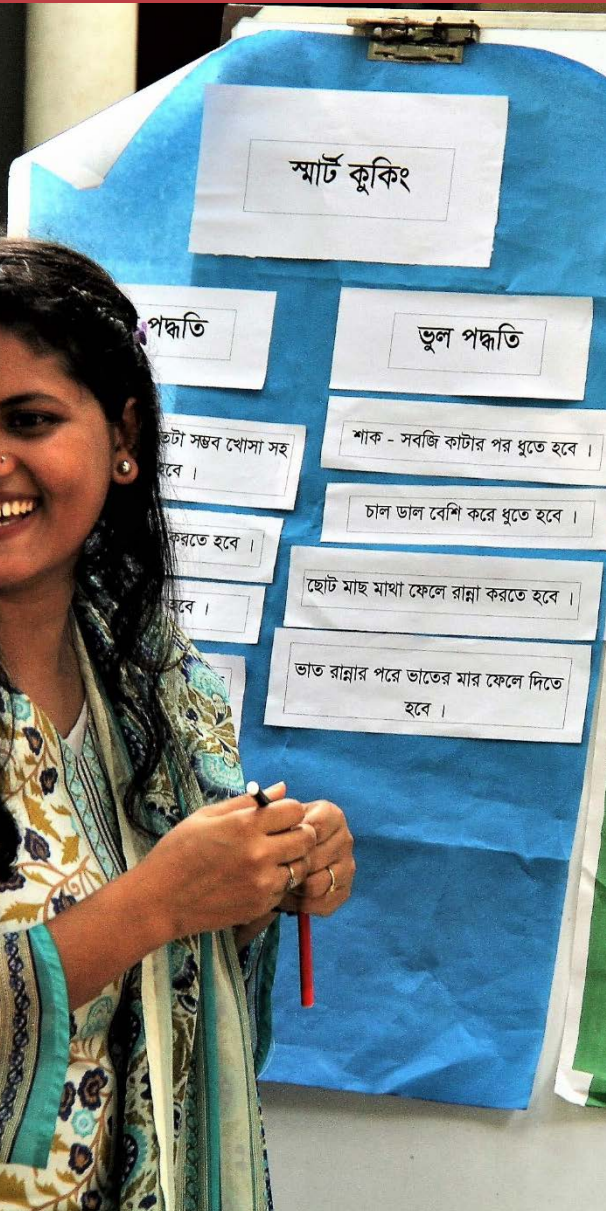 স্মার্ট কুকিং
পদ্ধতি
সম্ভব খোসা সহ
হবে ।
করতে হবে ।
হবে ।
ভুল পদ্ধতি
শাক - সবজি কাটার পর ধুতে হবে ।
চাল ডাল বেশি করে ধুতে হবে ।
ছোট মাছ মাথা ফেলে রান্না করতে হবে ।
ভাত রান্নার পরে ভাতের মার ফেলে দিতে
হবে ।